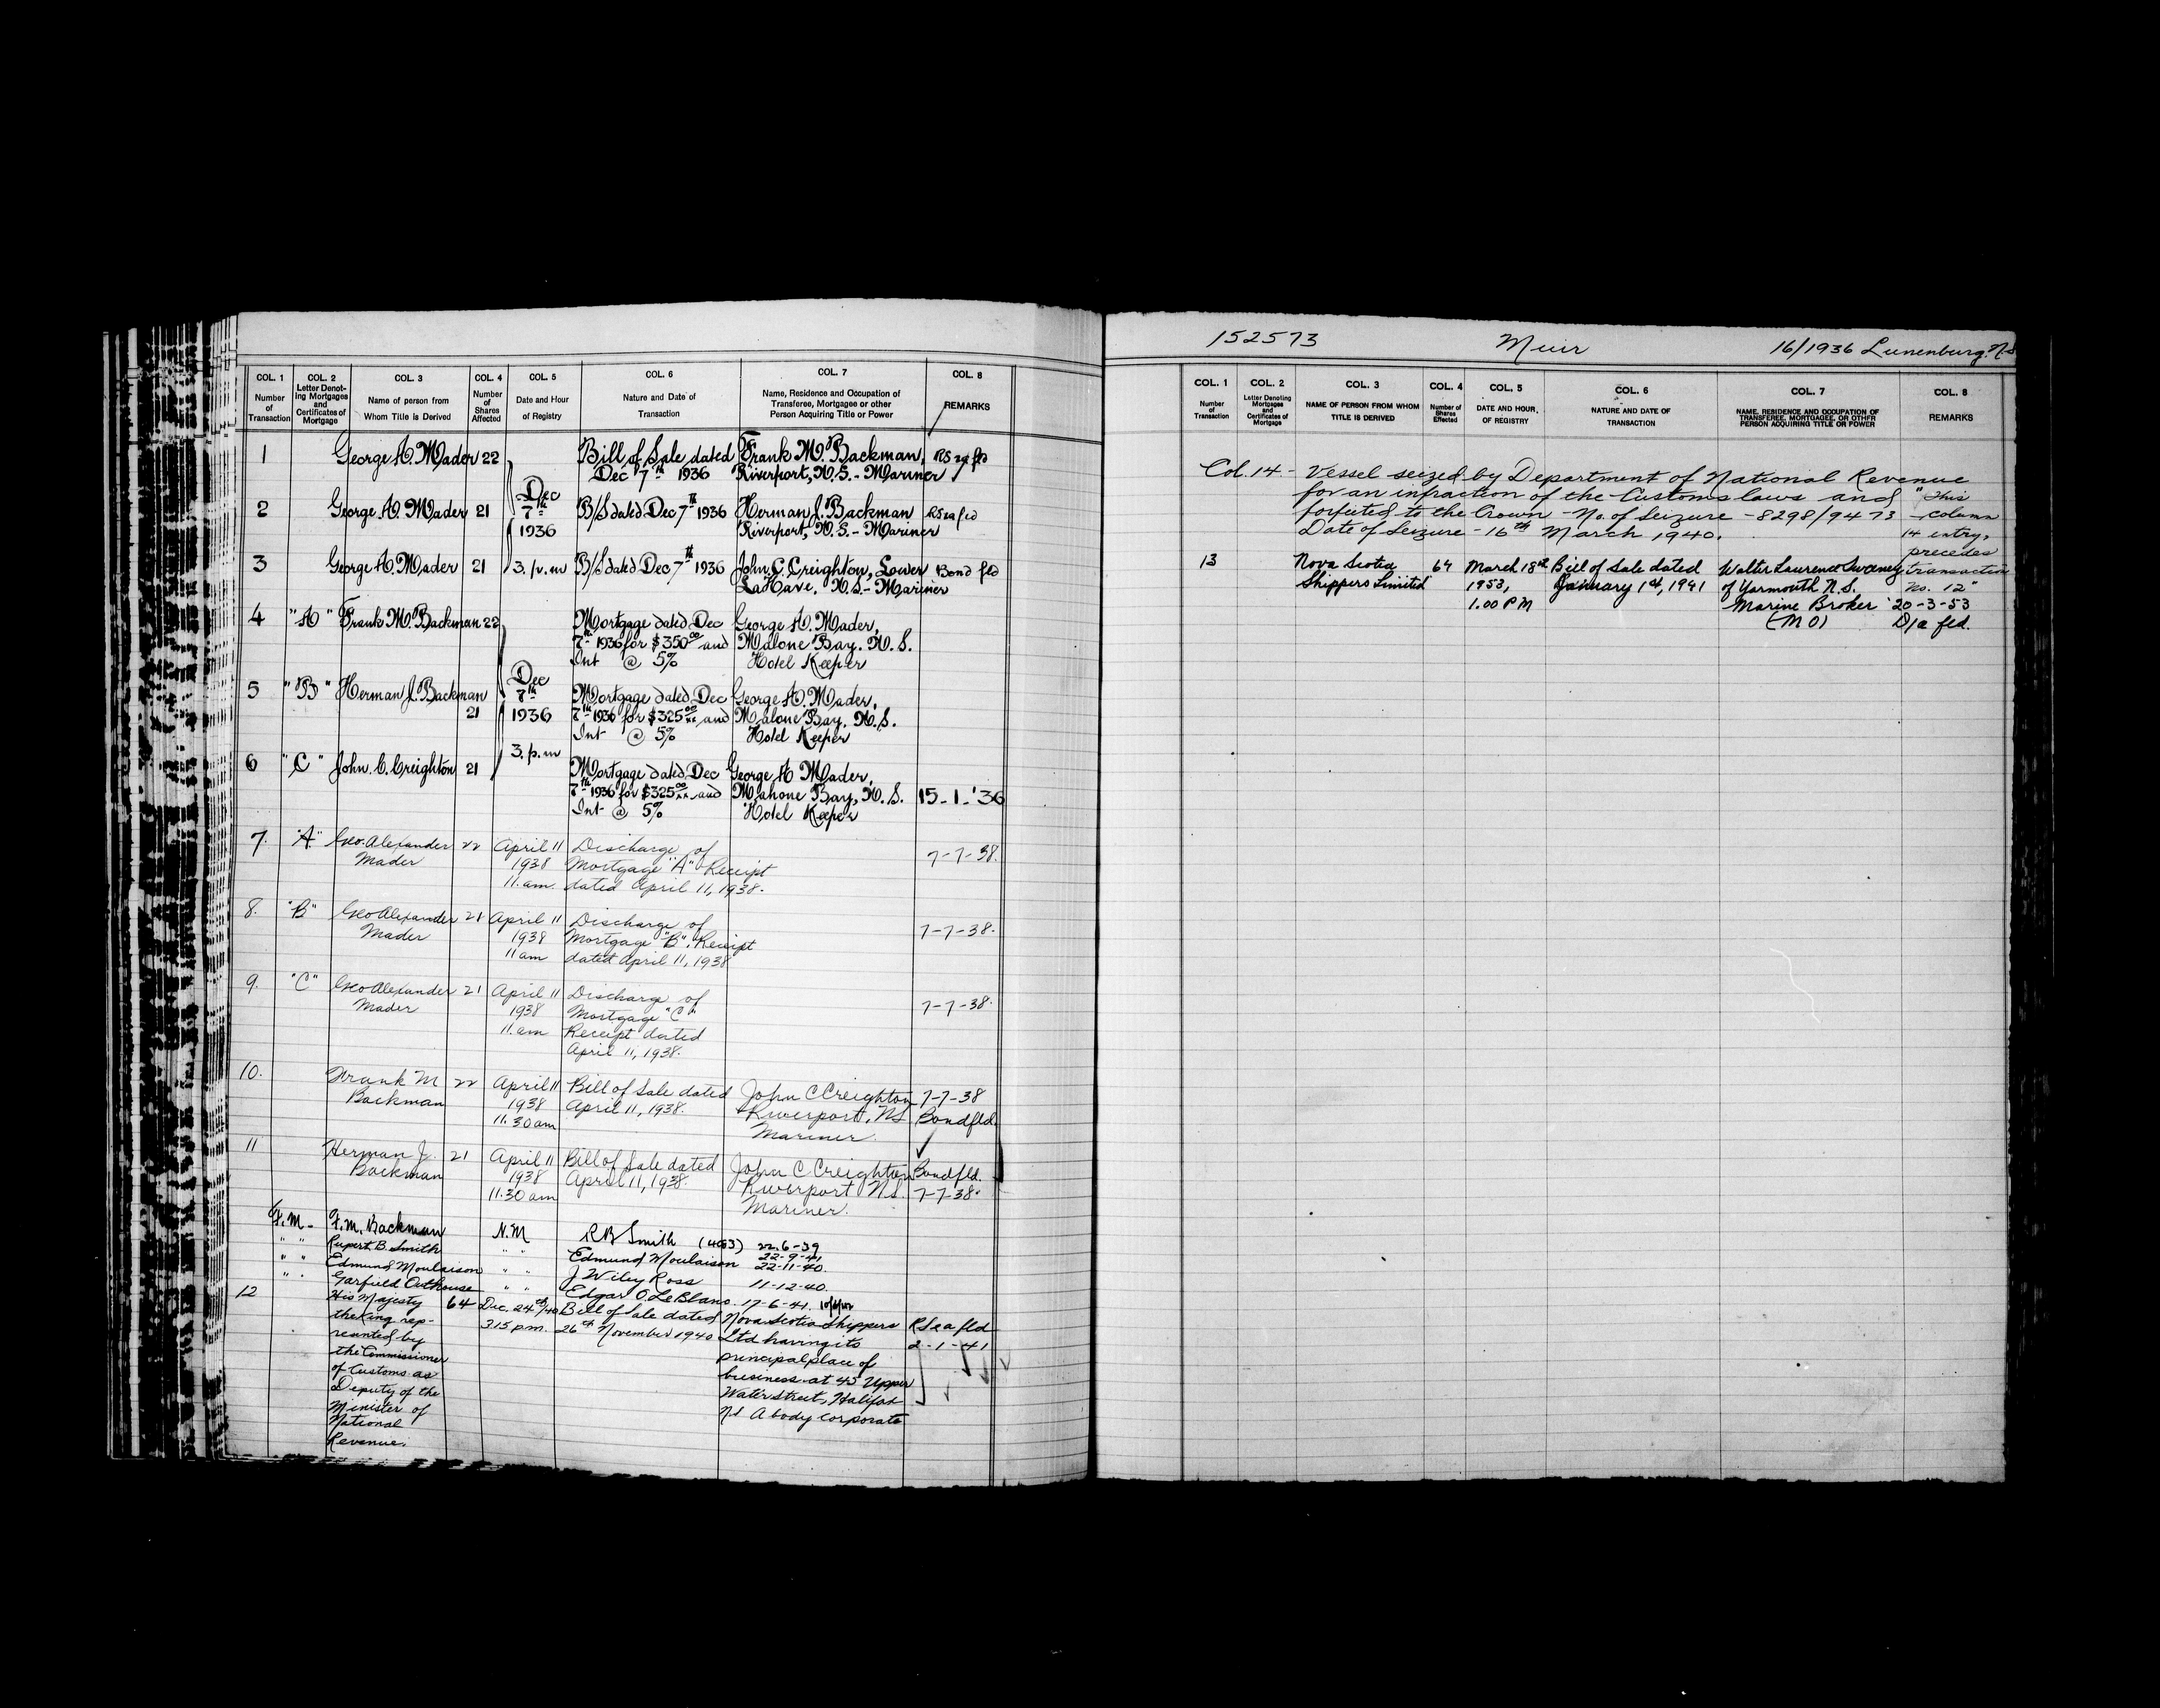 COL. 1 COL. 2 COL. 3 COL. 4 COL. 5 COL. 6 COL. 7 COL. 8
Number of Transaction
Letter Denoting Mortgages and Certificates of Mortgage
Name of person from Whom Title is Derived
Number of Shares Affected
Date and Hour of Registry
Nature and Date of Transaction
Name, Residence and Occupation of Transferee, Mortgagee or other Person Acquiring Title or Power
REMARKS
1 George A. Mader 22 Bill of Sale dated Frank M. Backman
Dec 7th 1936 Riverport, N.S. - Mariner
Dec
2 George A. Mader 21 7th B/S dated Dec 7th 1936 Herman J. Backman
1936 Riverport, N.S. - Mariner
3 George A. Mader 21 3. p.m B/S dated Dec 7th 1936 John C. Creighton, Lower Bond fld
LaHave. N.S. - Mariner
4 "A" Frank M. Backman 22 Mortgage dated Dec George A. Mader,
7th 1936 for $350 00 and Malone Bay. N.S.
Int @ 5% Hotel Keeper
Dec
5 "B" Herman J. Backman 7th Mortgage dated Dec George A. Mader,
21 1936 7th 1936 for $325 00/xx and Malone Bay. N.S.
Int @ 5% Hotel Keeper
3. p.m
6 "C" John C. Creighton 21 Mortgage dated Dec George A Mader,
7th 1936 for $325 00/xx and Mahone Bay, N.S. 15-1-'36
Int @ 5% Hotel Keeper
7. "A" Geo. Alexander 22 April 11 Discharge of
Mader 1938 Mortgage "A" Receipt 7-7-38.
11.am. dated April 11, 1938.
8. "B" Geo Alexander 21 April 11 Discharge of
Mader 1938 Mortgage "B". Receipt 7-7-38.
11am dated April 11, 1938
9. "C" Geo Alexander 21 April 11 Discharge of
Mader 1938 Mortgage "C" 7-7-38.
11.am Receipt dated
April 11, 1938.
10. Frank M 22 April 11 Bill of Sale dated John C Creighton 7-7-38
Backman 1938 April 11, 1938. Riverport, NS Bond fld.
11.30 am Mariner
11 Herman J. 21 April 11 Bill of Sale dated John C Creighton Bond fld.
Backman 1938 April 11, 1938. Riverport NS 7-7-38.
11.30 am Mariner.
F.M- F.M. Backman N.M R B Smith 22.6-39
" " Rupert B. Smith " " Edmund Moulaison
" " Edmund Moulaison J Wiley Ross 22-11-40.
" " Garfield Outhouse " " Edgar O LeBlanc. 11-12-40.
17-6-41.
12 His Majesty 64 Dec. 24th/40 Bill of Sale dated Nova Scotia Shippers RS ea fld
the King rep- 3.15 p.m. 26th November 1940 Ltd having its 2-1-41
resented by principal place of
the Commissioner business at 45 Upper
of Customs as Water Street, Halifax
Deputy of the NS A body corporate
Minister of
National
Revenue.
152573 Muir 16/1936 Lunenburg. N.S
COL. 1 COL. 2 COL. 3 COL. 4 COL. 5 COL. 6 COL. 7 COL. 8
Number of Transaction
Letter Denoting Mortgages and Certificates of Mortgage
NAME OF PERSON FROM WHOM TITLE IS DERIVED
Number of Shares Effected
DATE AND HOUR, OF REGISTRY
NATURE AND DATE OF TRANSACTION
NAME, RESIDENCE AND OCCUPATION OF TRANSFEREE, MORTGAGEE, OR OTHER PERSON ACQUIRING TITLE OR POWER
REMARKS
Col. 14 - Vessel seized by Department of National Revenue
for an infraction of the Customs laws and "This
forfeited to the Crown - No. of Seizure - 8298/9473 column
Date of Seizure - 16th March 1940. 14 entry,
precedes
13 Nova Scotia 64 March 18th Bill of Sale dated Walter Laurence Sweeney transaction
Shippers Limited 1953, January 14, 1941 of Yarmouth N.S. No. 12"
1.00 PM Marine Broker 20-3-53
(M O) D/a fld.